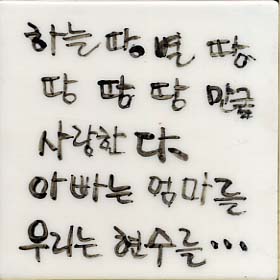 하늘 땅, 별 땅
땅 땅 땅 만큼
사랑한 다.
아빠는 엄마를
우리는 현수를...